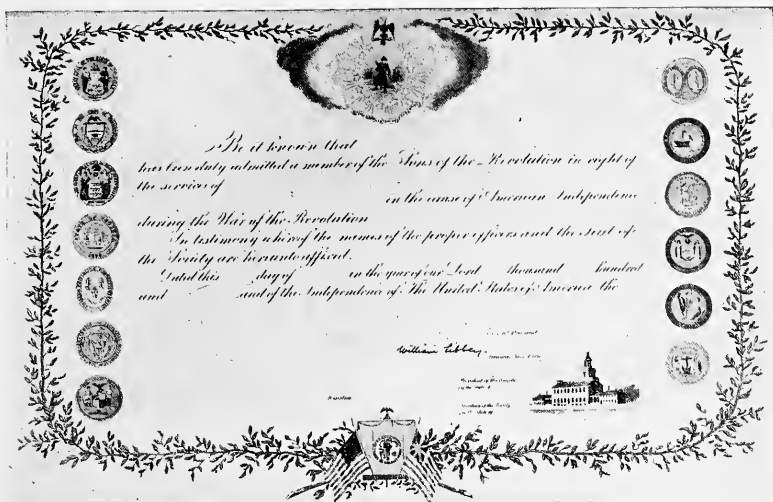 Be it known that
has been duly admitted a member of the Sons of the Revolution in right of
the services of
in the cause of American Independence
during the War of the Revolution
In testimony whereof the names of the proper officers and the seal of
the Society are hereunto affixed.
Dated this day of in the year of our Lord thousand hundred
and and of the Independence of The United States of America the
William Libbey.